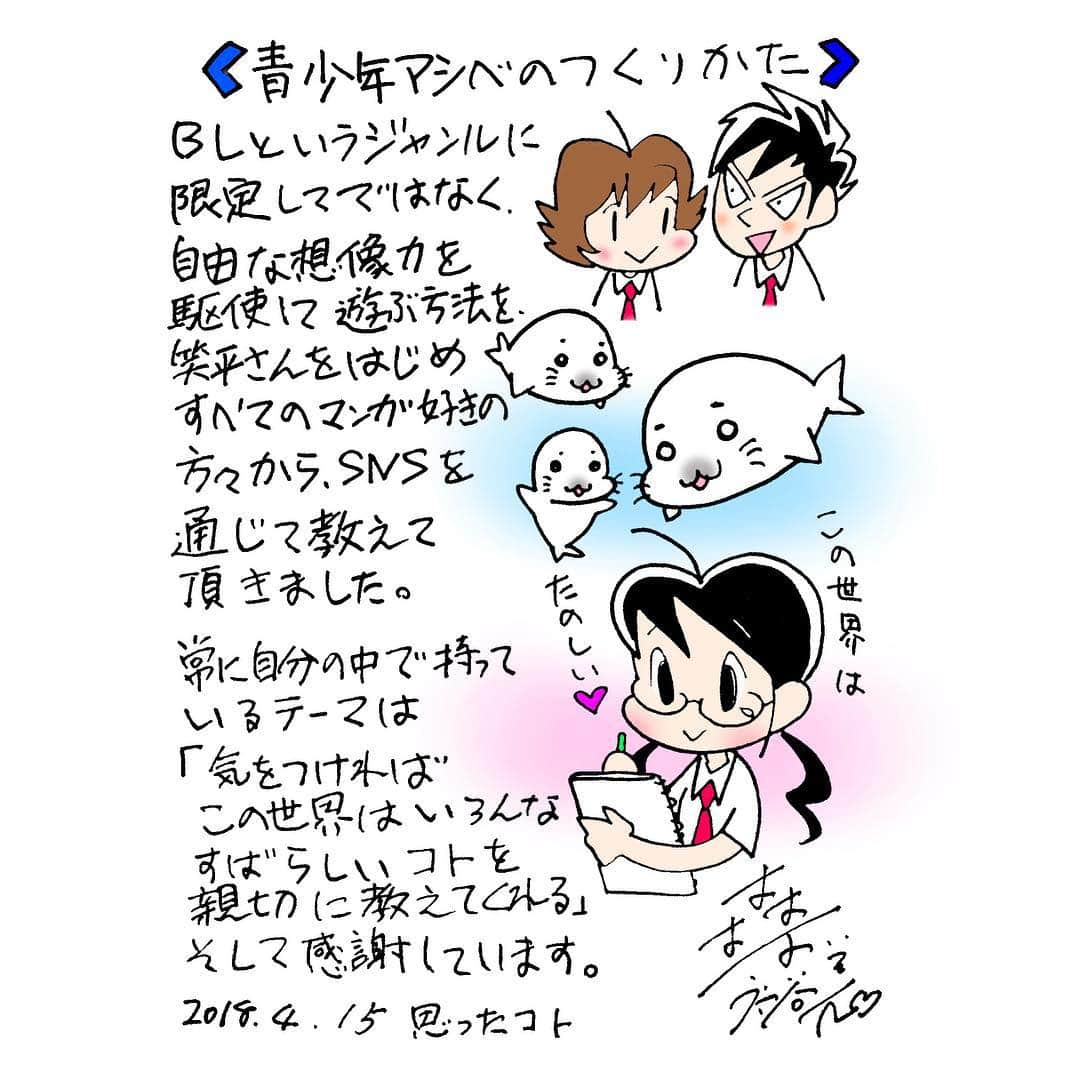 《青少年アシベのつくりかた》
BLというジャンルに
限定してではなく、
自由な想像力を
駆使して遊ぶ方法を、
笑平さんをはじめ
すべてのマンガ好きの
方々から、SNSを
通じて教えて
頂きました。
常に自分の中で持って
いるテーマは
「気をつければ
この世界はいろんな
すばらしいコトを
親切に教えてくれる」
そして感謝しています。
2018.4.15 思ったコト
この世界は
たのしい